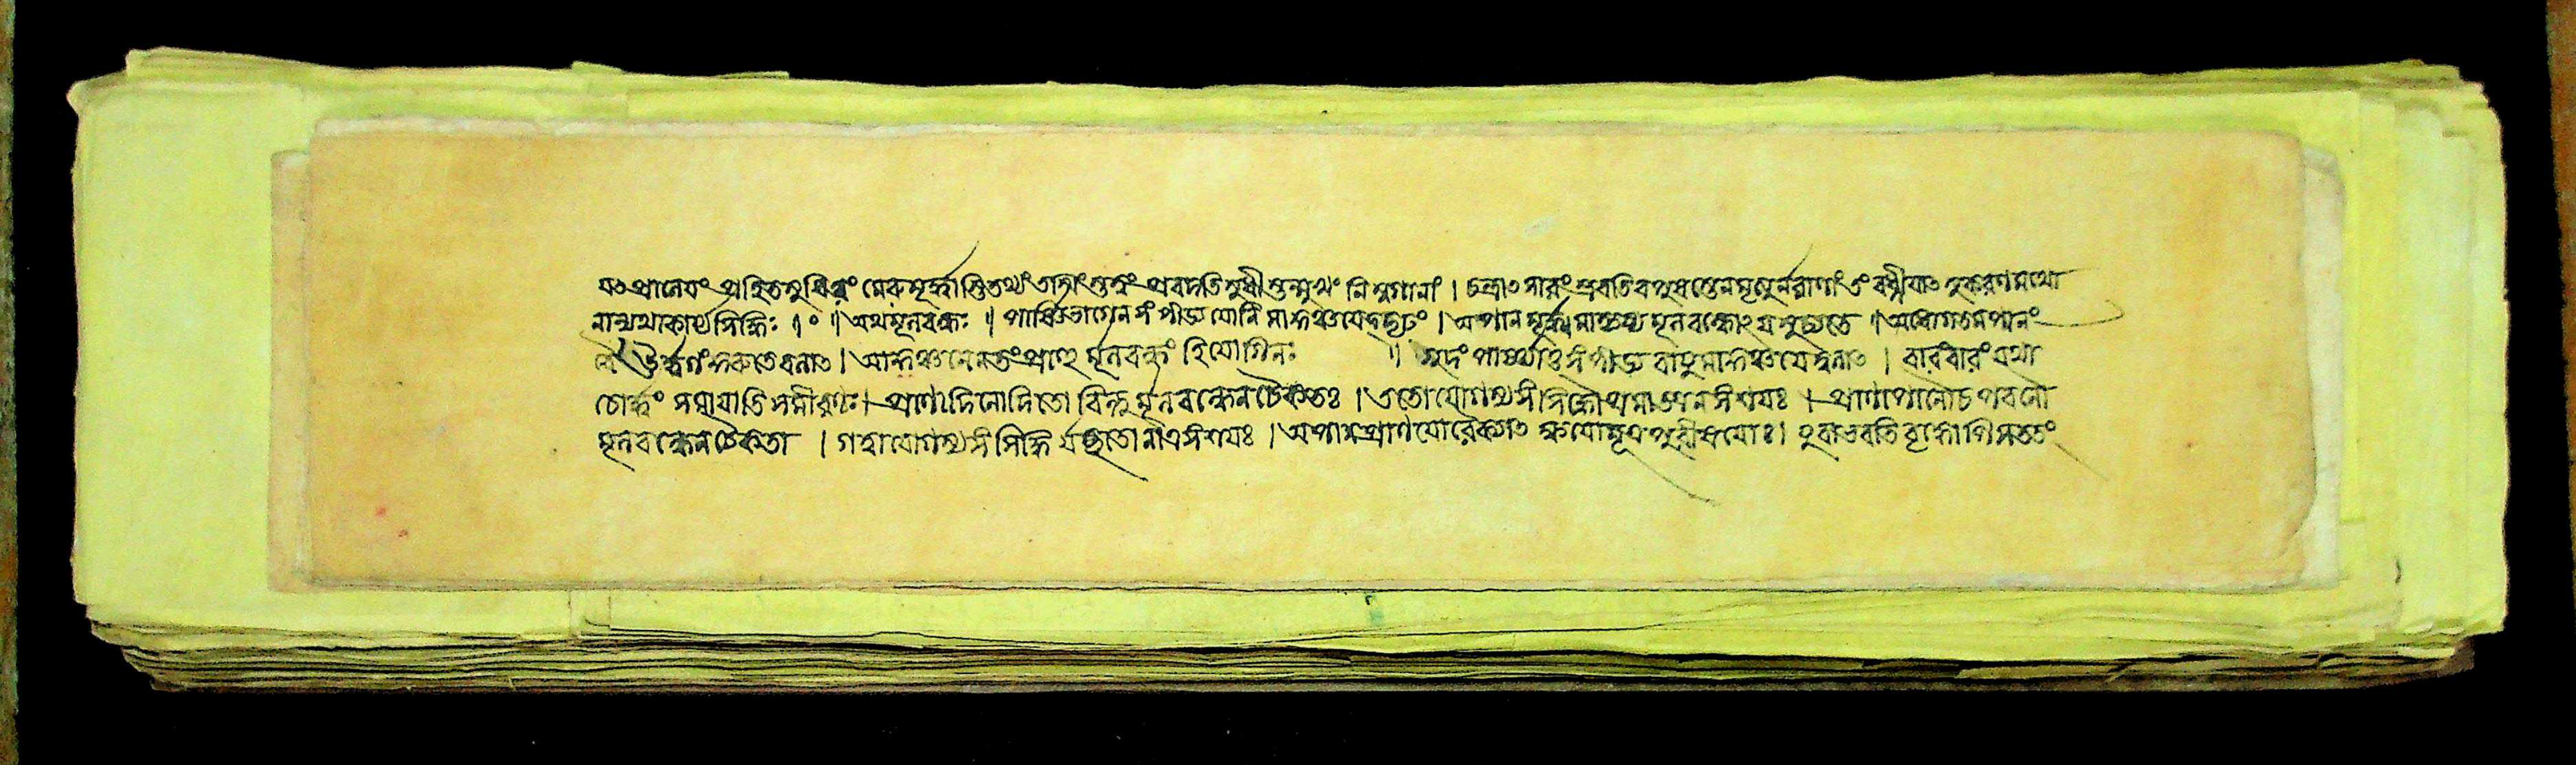 যৎ প্রালেযং প্রহিতসুষিরং মেরুমূর্দ্ধা প্রবদতিসুধীস্তন্মুখং নিম্নগানাং । চন্দ্রাৎ সারং স্রবতিবপুষস্তেনমৃত্যুর্নরাণাং তং বধ্নীযাৎ সুকরণমথো
নান্যথাকার্য্যসিদ্ধিঃ ॥ ০ ॥ অথমূলবন্ধঃ ॥ পার্ষ্ণিভাগেনসংপীড্যযোনিমাকুঞ্চযেদ্দৃঢং । অপানমূর্দ্ধমাকৃষ্য মূলবন্ধোঽযমুচ্যতে ॥ অধোগতমপানং
বৈ উর্দ্ধগং কুরুতেবলাৎ । আকুঞ্চনেনতংপ্রাহুর্মূলবন্ধং হিযোগিনঃ ॥ গুদং পার্ষ্ণ্যাতুসংপীড্য বাযুমাকুঞ্চযেদ্বলাৎ । বারংবারংযথা
চোর্দ্ধং সমাযাতিসমীরণঃ । বিন্দুর্মূলবন্ধেনচৈকতঃ । ততোযোগস্যসংসিদ্ধৌ নসংশযঃ । প্রাণাপানৌচপবনৌ
মূলবন্ধেনচৈকতা । গত্বাযোগস্যসংসিদ্ধির্যচ্ছতোনাত্রসংশযঃ । অপানপ্রাণযোরৈক্যাৎ ক্ষযোমূত্রপুরীষযোঃ । যুবাভবতিবৃদ্ধোপিসততং